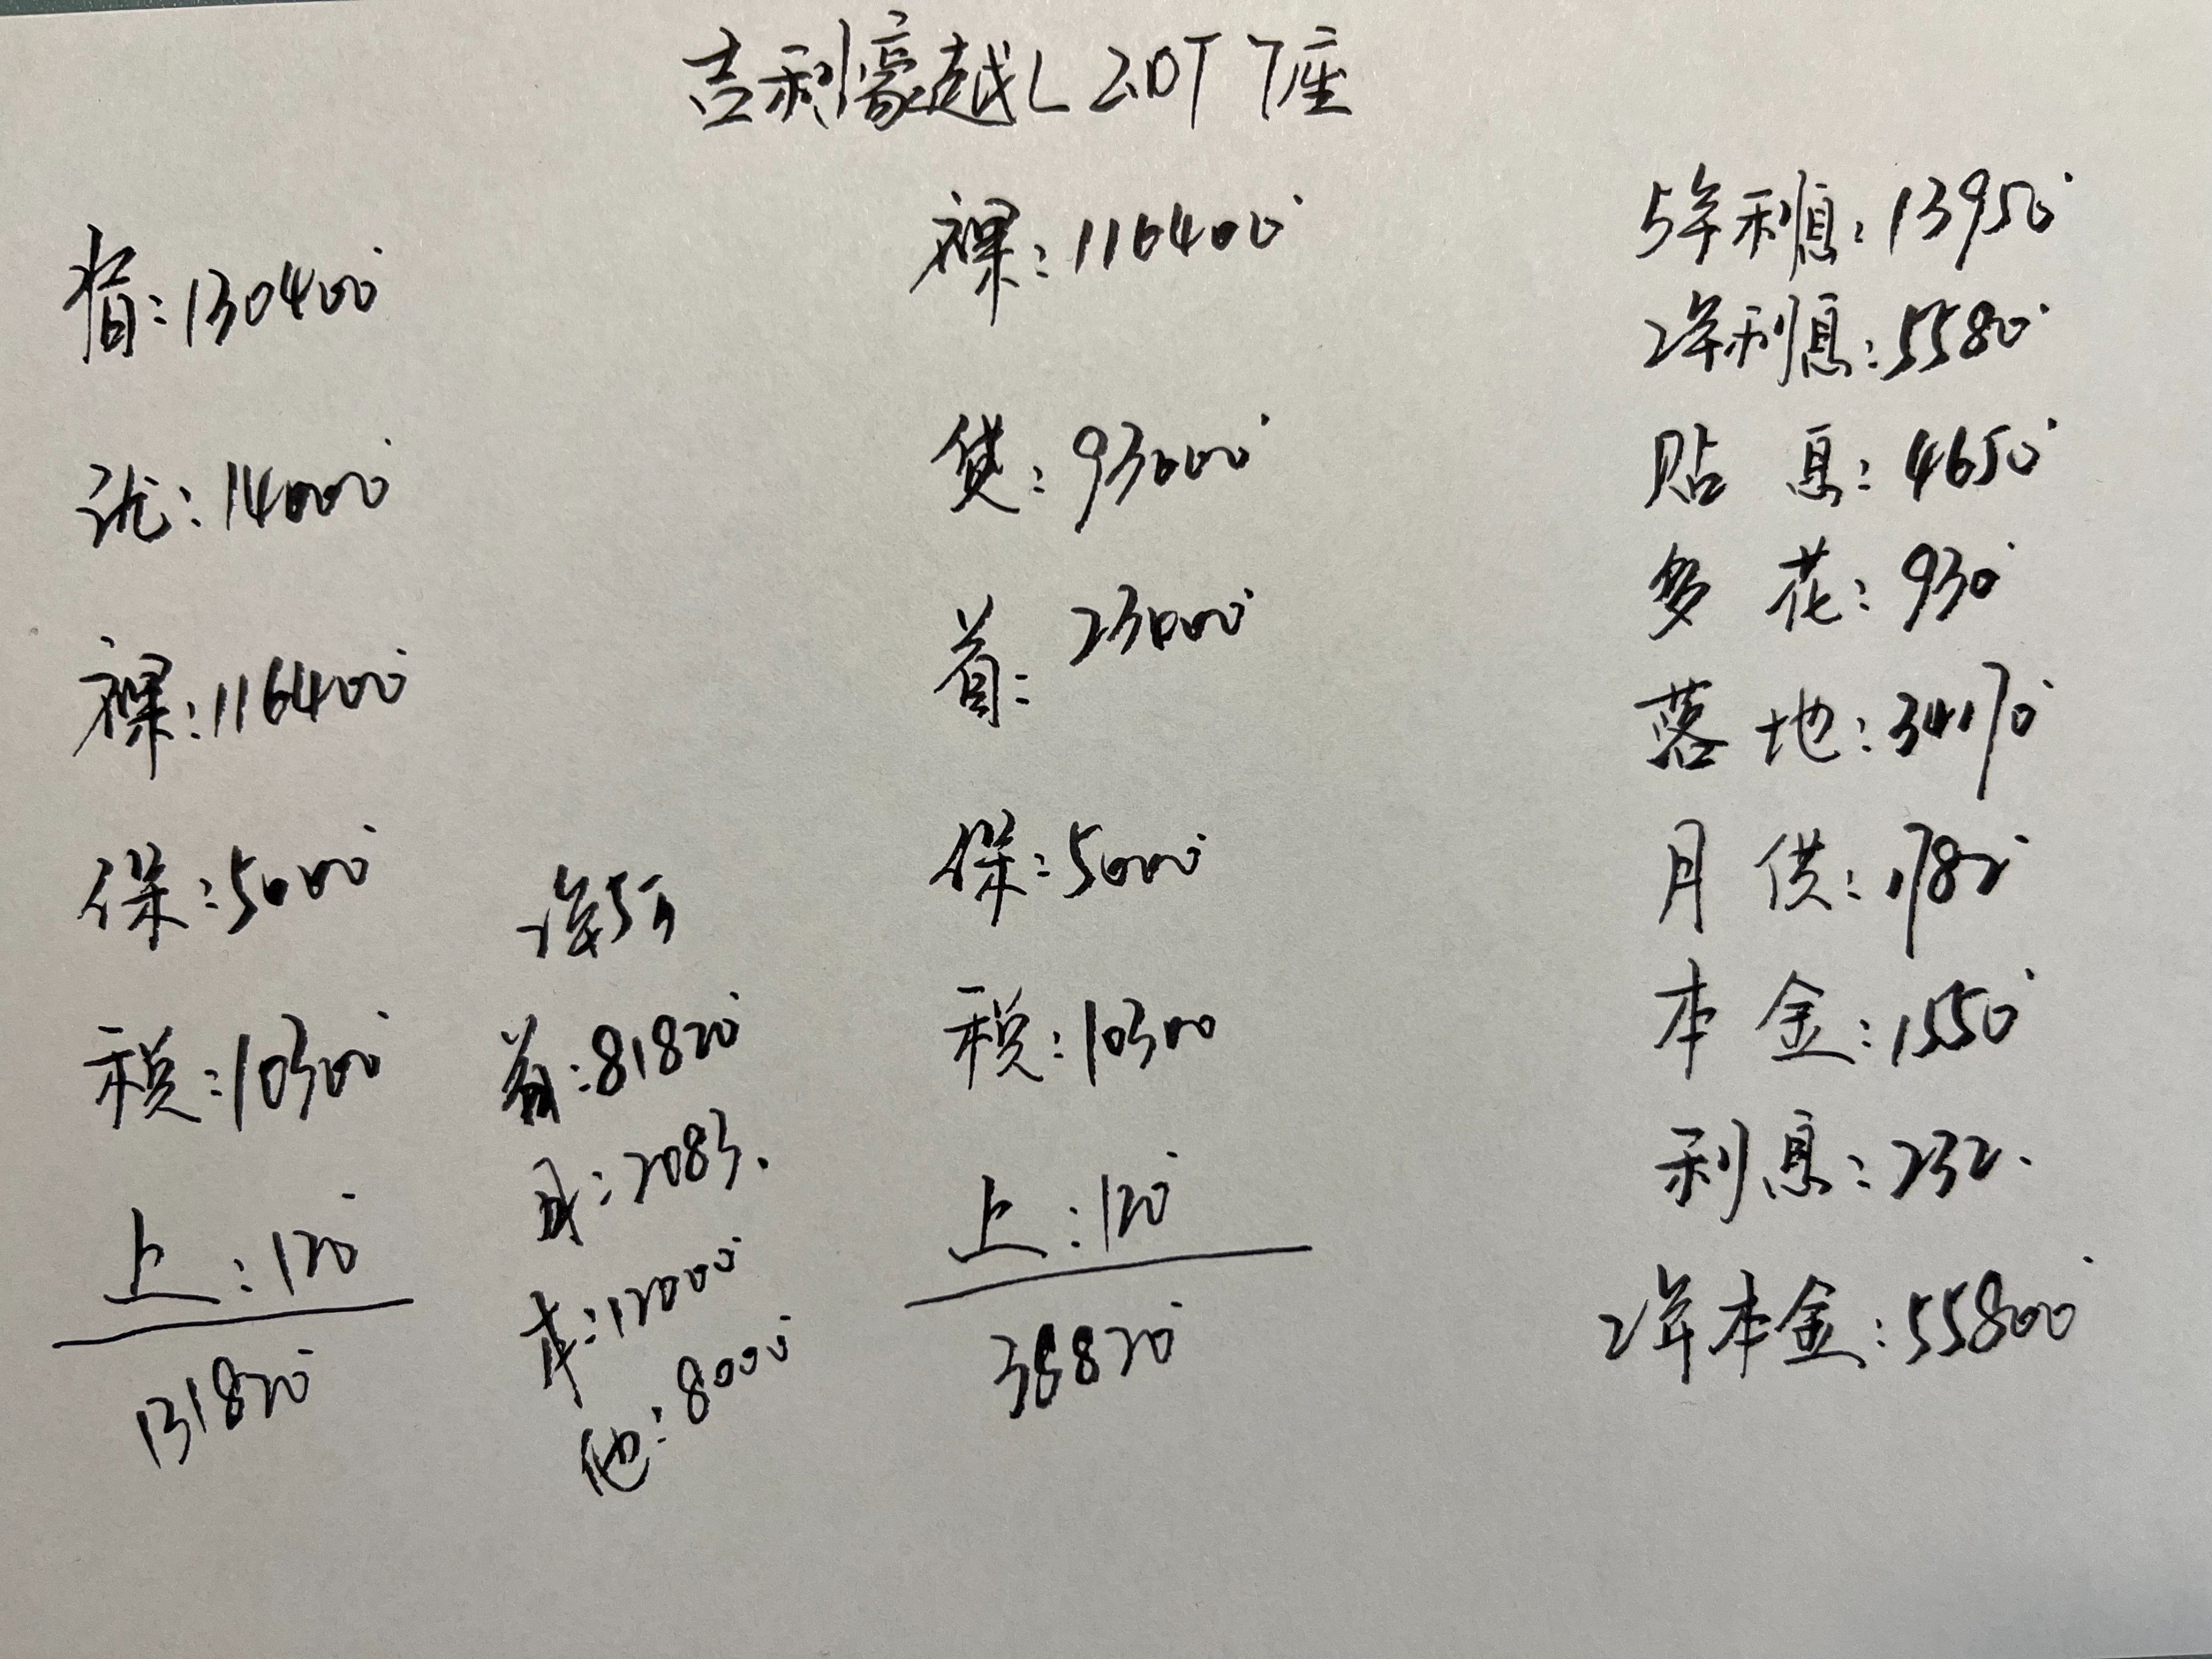 吉利豪越L 2.0T 7座
指:130400
优:14000
裸:116400
保:5000
税:10300
上:120
131820
2年5万
首:81820
月:2083.
本:12000
他:8000
裸:116400
贷:93000
首:23000
保:5000
税:10300
上:120
38820
5年利息:13950
2年利息:5580
贴息:4650
多花:930
落地:34170
月供:1782
本金:1550
利息:232.
2年本金:55800